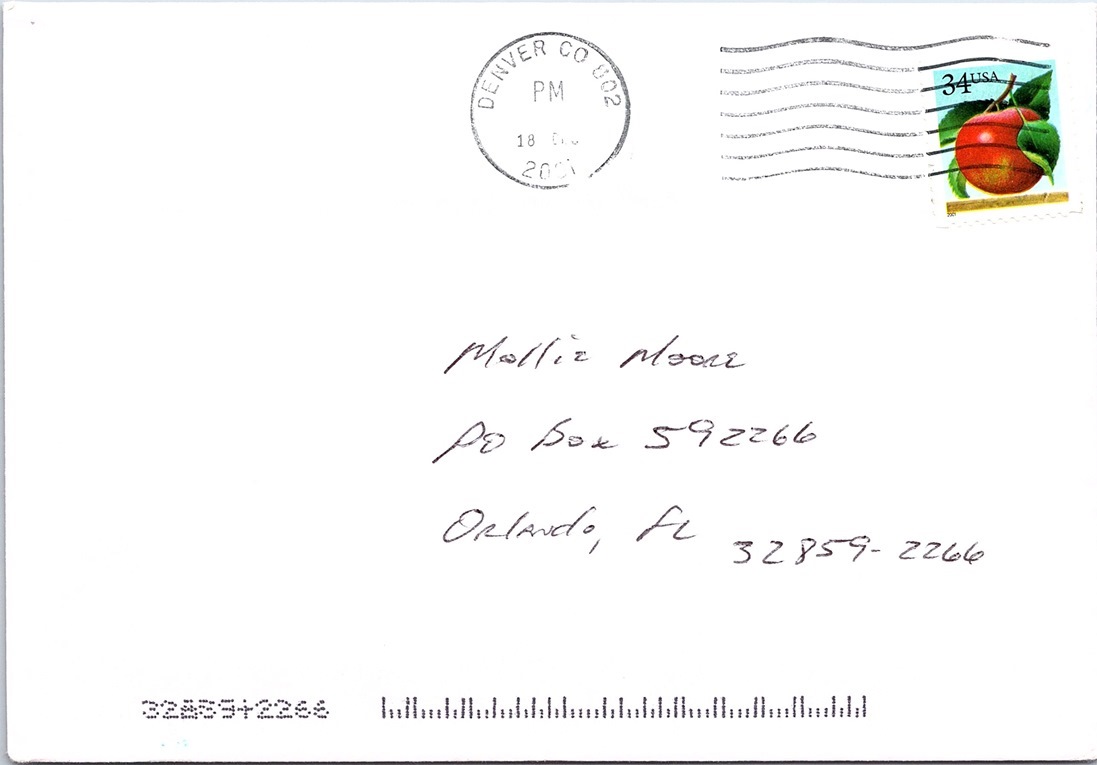 DENVER CO 802
PM
18
34 USA
Mollie Moore
PO Box 592266
Orlando, FL 32859-2266
32859+2266